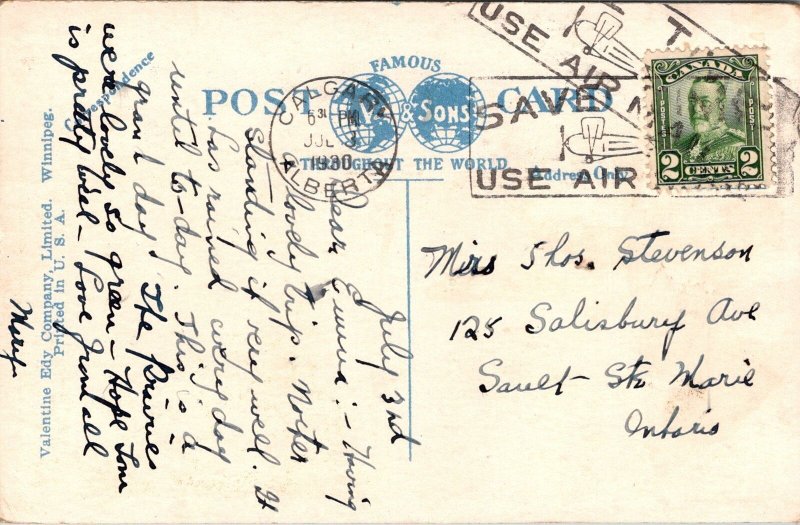 FAMOUS
POST CARD
& SONS
THROUGHOUT THE WORLD
Correspondence
Address Only
Valentine Edy Company, Limited. Winnipeg.
Printed in U. S. A.
CALGARY
PM
JUL 3
1930
ALBERTA
USE AIR
SAVE
USE AIR
CANADA
POSTES
POSTES
2 CENTS 2
July 3rd
Dear Emma:- Having
a lovely trip.
standing it very well. It
has rained every day
until to-day. This is a
grand day. The Prairies
were lovely & so green - Hope Tom
is pretty well - Love from all
Mrs Thos. Stevenson
125 Salisbury Ave
Sault - Ste Marie
Ontario